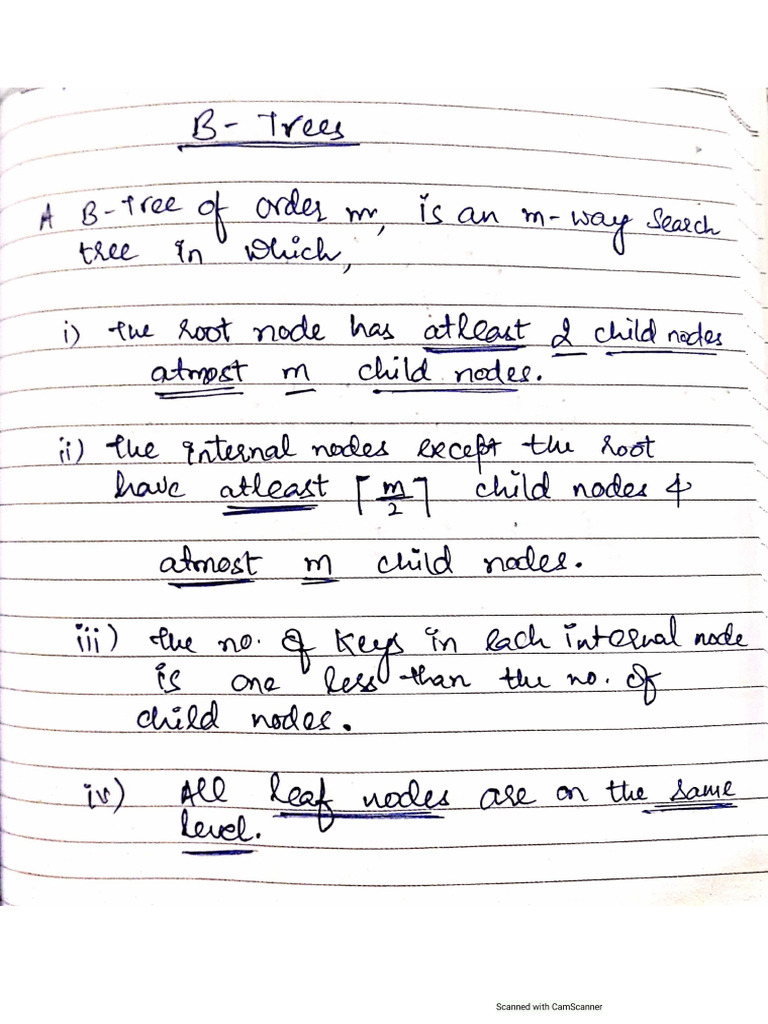 B-Trees
A B-Tree of order m, is an m-way search
tree in which,
i) the root node has atleast 2 child nodes
atmost m child nodes.
ii) the internal nodes except the root
have atleast ⌈m/2⌉ child nodes &
atmost m child nodes.
iii) the no. of keys in each internal node
is one less than the no. of
child nodes.
iv) All leaf nodes are on the same
level.
Scanned with CamScanner